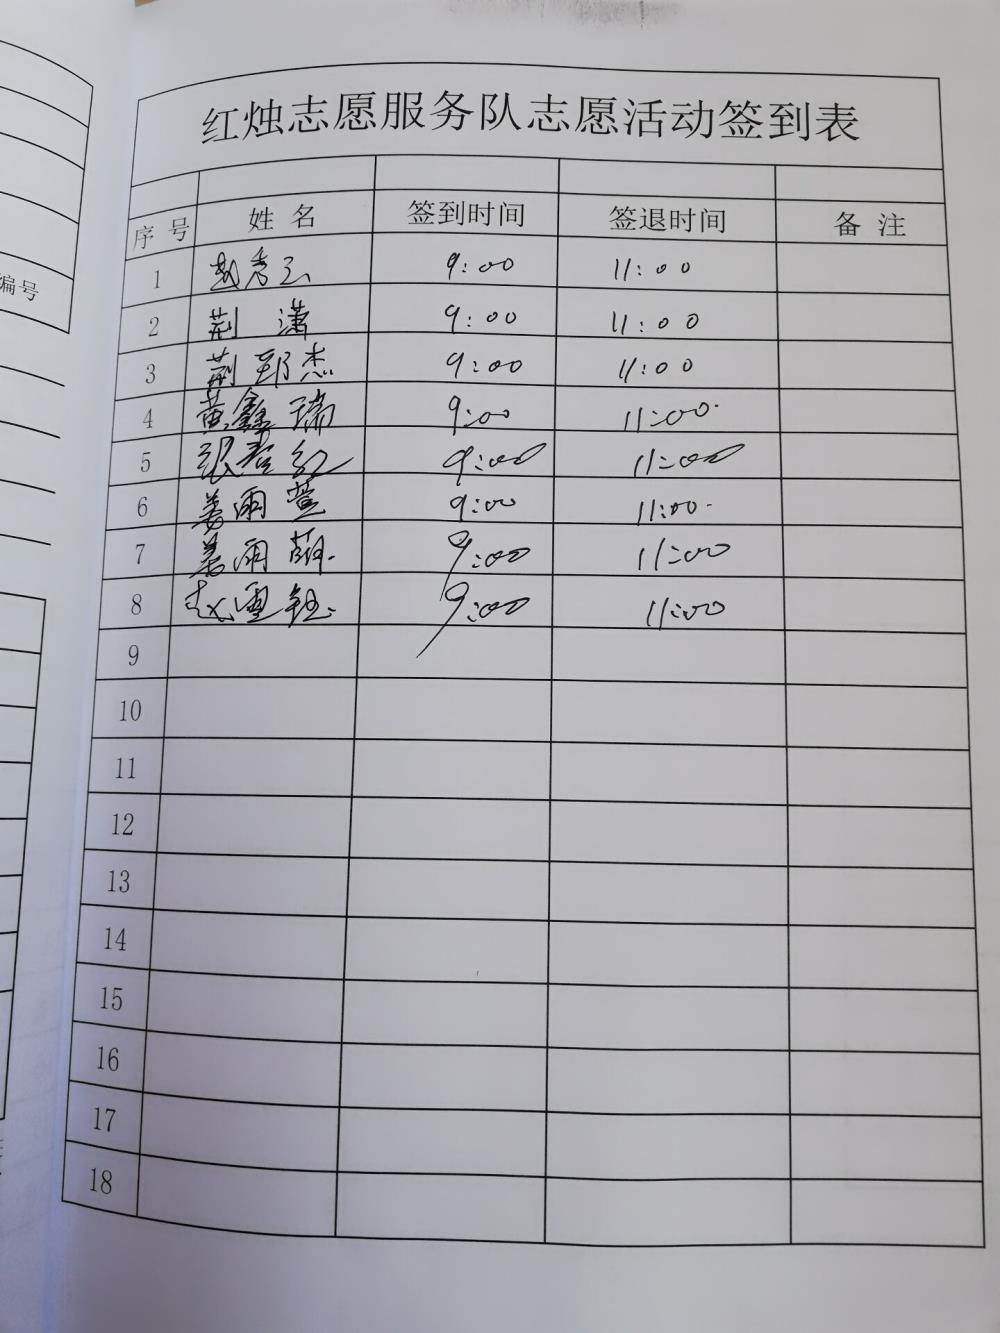 红烛志愿服务队志愿活动签到表
序号 姓名 签到时间 签退时间 备注
1 赵秀玉 9:00 11:00
2 荆潇 9:00 11:00
3 荆郅杰 9:00 11:00
4 黄鑫瑞 9:00 11:00
5 张春红 9:00 11:00
6 姜雨萱 9:00 11:00
7 姜雨 9:00 11:00
8 赵雪钰 9:00 11:00
9
10
11
12
13
14
15
16
17
18
编号